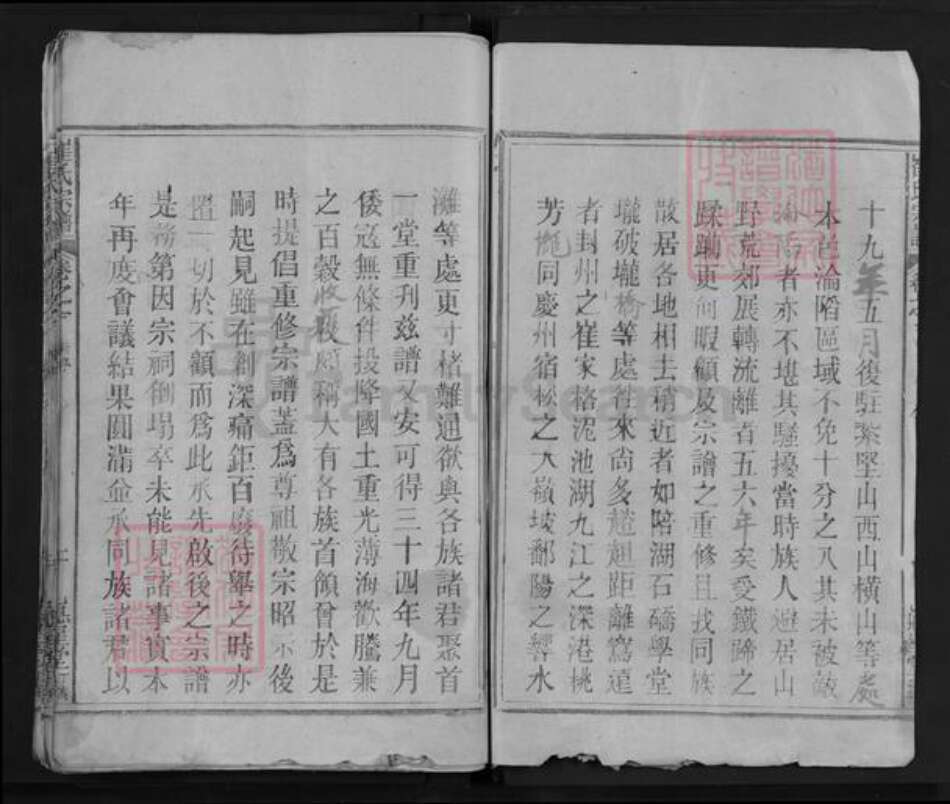 十九年五月復駐紮堅山西山橫山等處
本邑淪陷區域不免十分之八其未被敵
淪陷者亦不堪其騷擾當時族人避居山
野荒郊展轉流離者五六年矣受鐵蹄之
蹂躪更何暇顧及宗譜之重修且我同族
散居各地相去稍近者如陪湖石磯學堂
壠破壠橋等處往來尙多趑趄距離窵遠
者封州之崔家格泥池湖九江之深港桃
芳攏同慶州宿松之大嶺坡鄱陽之響水
灘等處更寸楮難通欲與各族諸君聚首
一堂重刋玆譜又安可得三十四年九月
倭寇無條件投降國土重光薄海歡騰兼
之百穀收穫頗稱大有各族首領曾於是
時提倡重修宗譜蓋爲尊祖敬宗昭示後
嗣起見雖在創深痛鉅百廢待舉之時亦
置一切於不顧而爲此承先啟後之宗譜
是務第因宗祠倒塌卒未能見諸事實本
年再度會議結果圓滿僉承同族諸君以
崔氏宗譜
FamilySearch